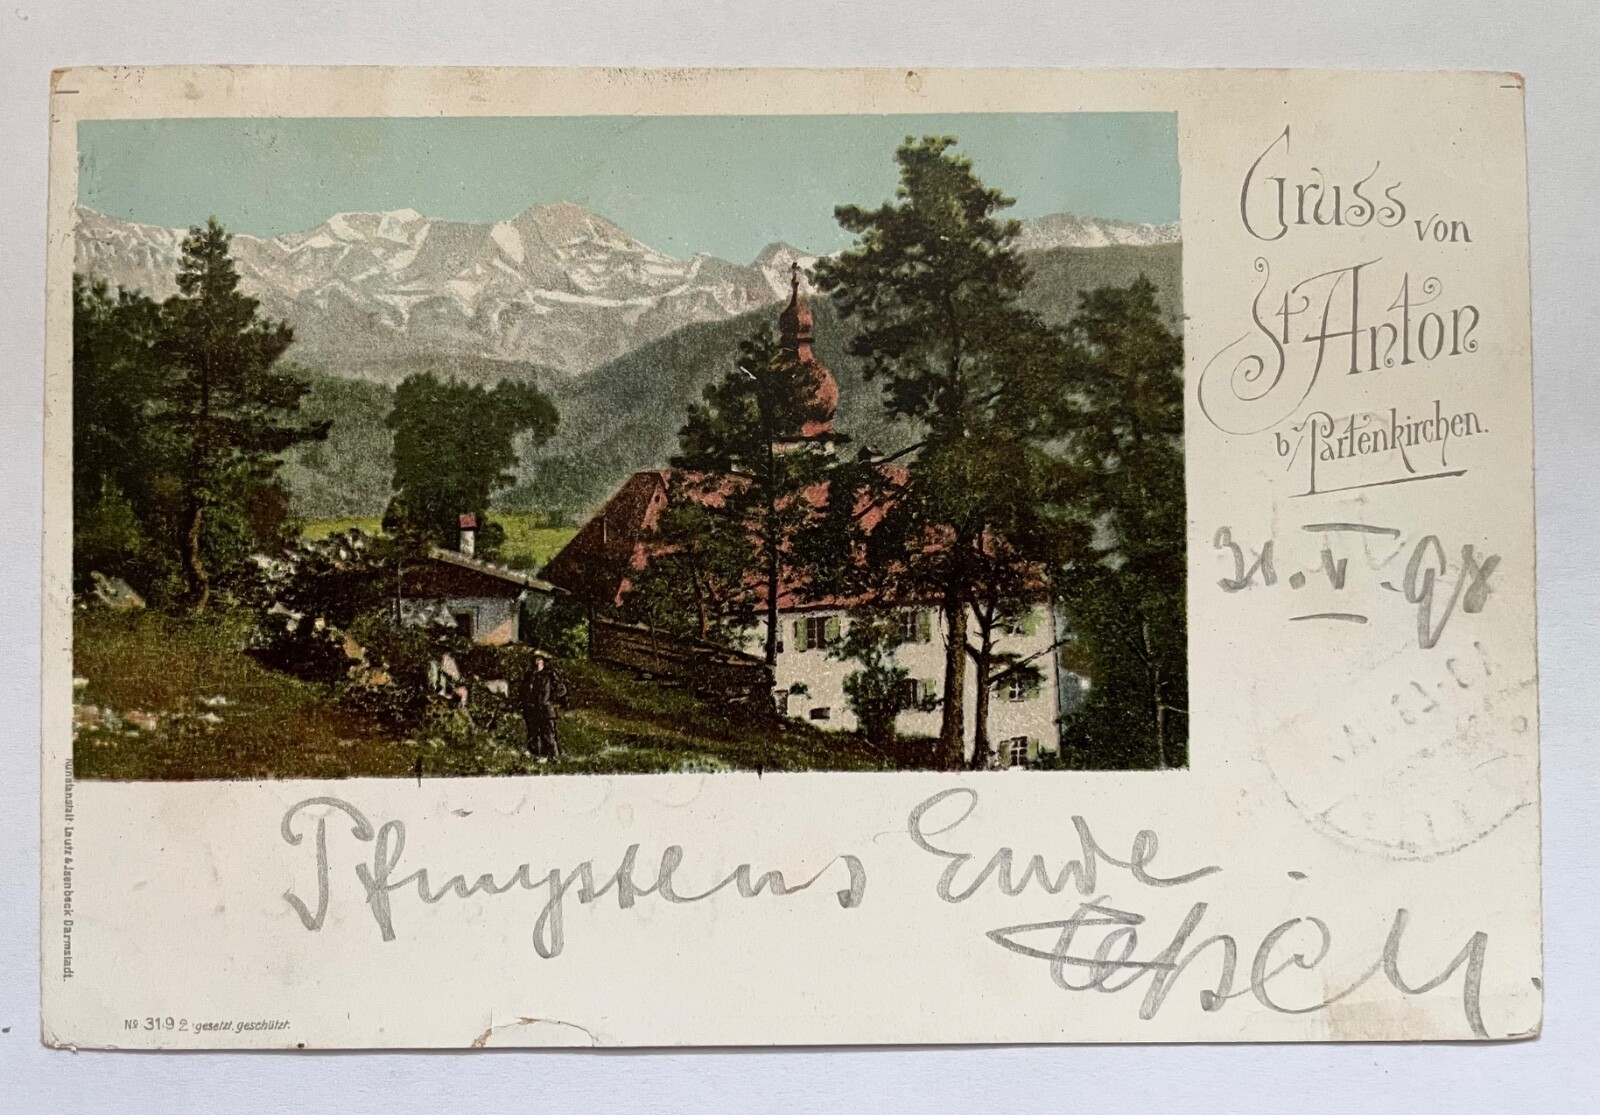 Gruss von
St Anton
b/Partenkirchen.
31.V.98
Pfingstens Ende.
Kunstanstalt Lautz & Isenbeck Darmstadt.
No 3192 gesetzl. geschützt.